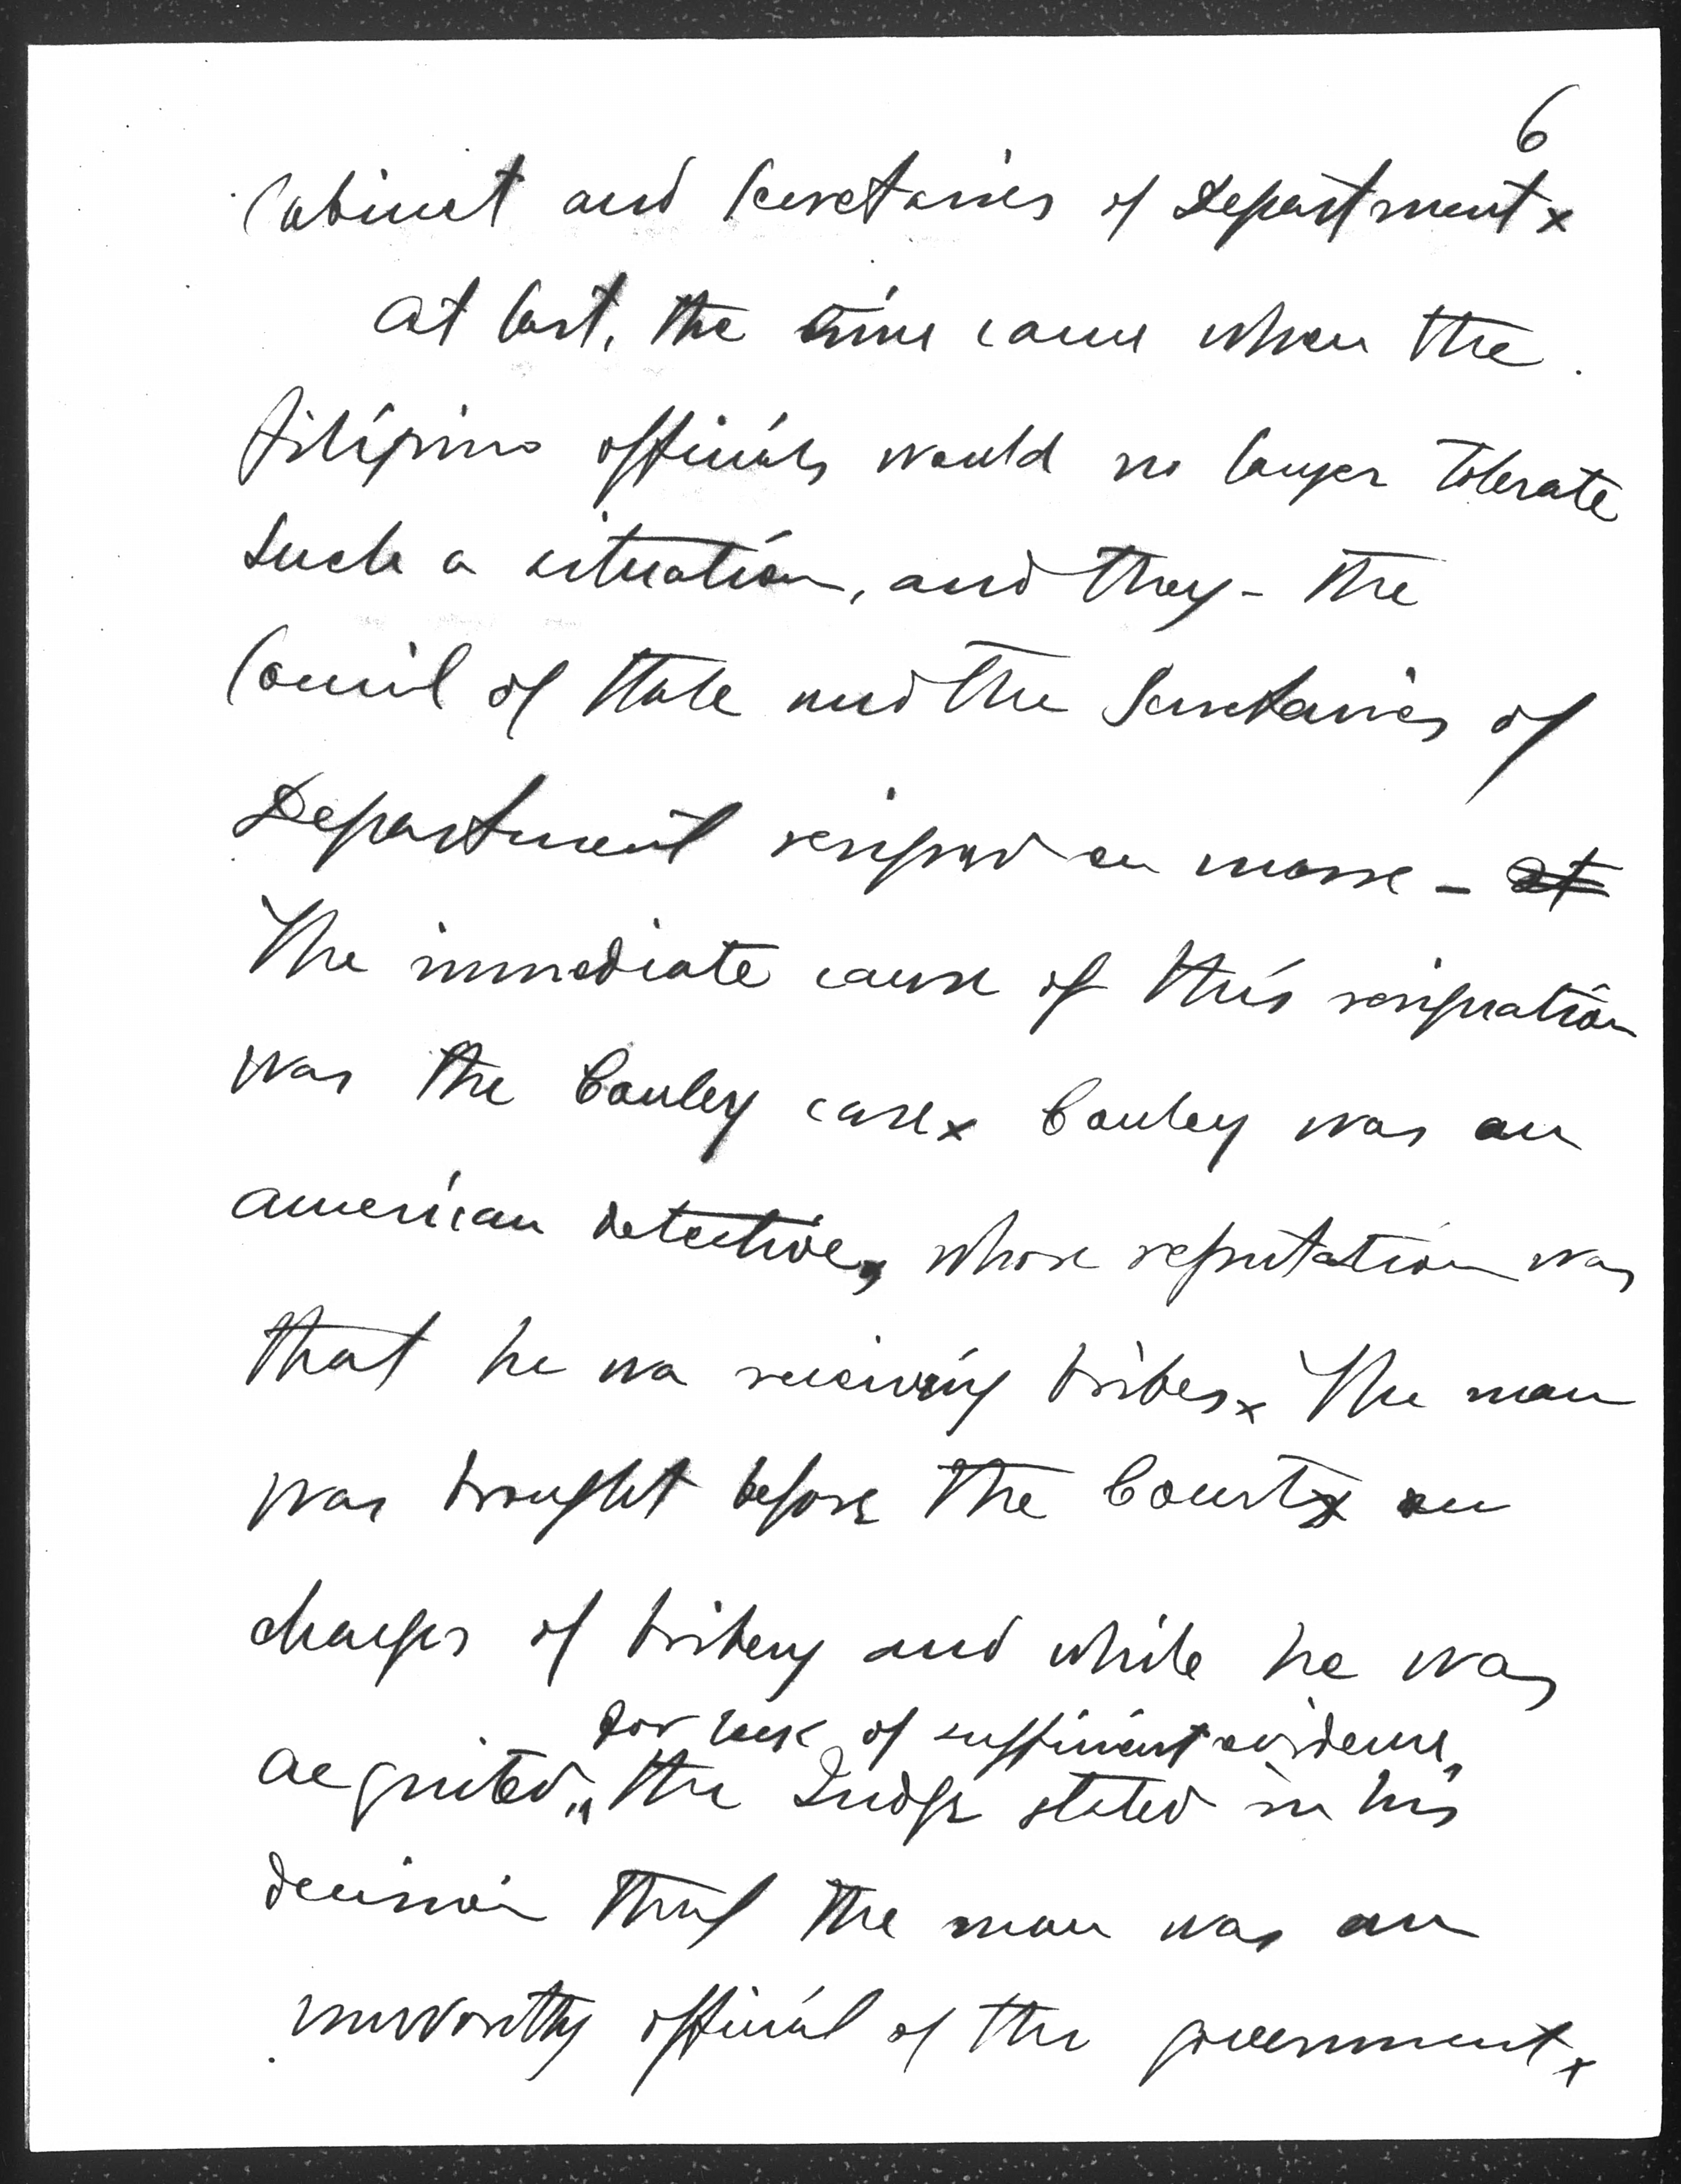 6
Cabinet and Secretaries of Department x
At last, the time came when the
Filipino officials would no longer tolerate
such a situation, and they - the
Council of State and the Secretaries of
Department resigned en masse - at
The immediate cause of this resignation
was the Conley case x Conley was an
American detective, whose reputation was
that he wa receiving bribes x The man
was brought before the Court x on
charges of bribery and while he was
for lack of sufficient evidence,
acquited, the Judge stated in his
decision that the man was an
unworthy official of the government x